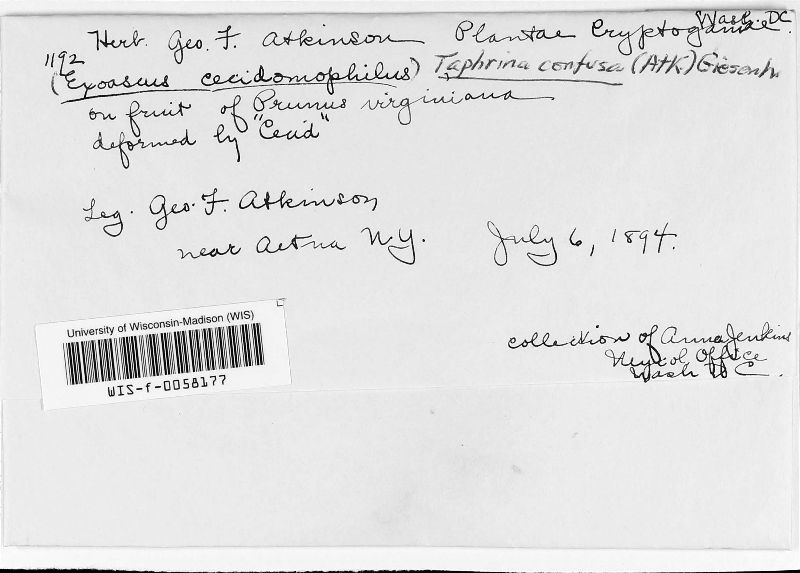 Herb. Geo. F. Atkinson Plantae Cryptogamae Wash. DC.
1192
(Exoascus cecidomophilus) Taphrina confusa (Atk) Giesenh
on fruit of Prunus virginiana
deformed by "Cecid"
Leg. Geo. F. Atkinson
near Aetna N.Y. July 6, 1894.
University of Wisconsin-Madison (WIS)
WIS-f-0058177
collection of Anna Jenkins
Mycol Office
Wash D C.